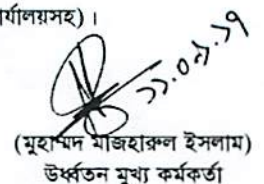 র্যালয়সহ)।
১১.০৯.১৭
(মুহাম্মদ মাজহারুল ইসলাম)
ঊর্ধ্বতন মুখ্য কর্মকর্তা